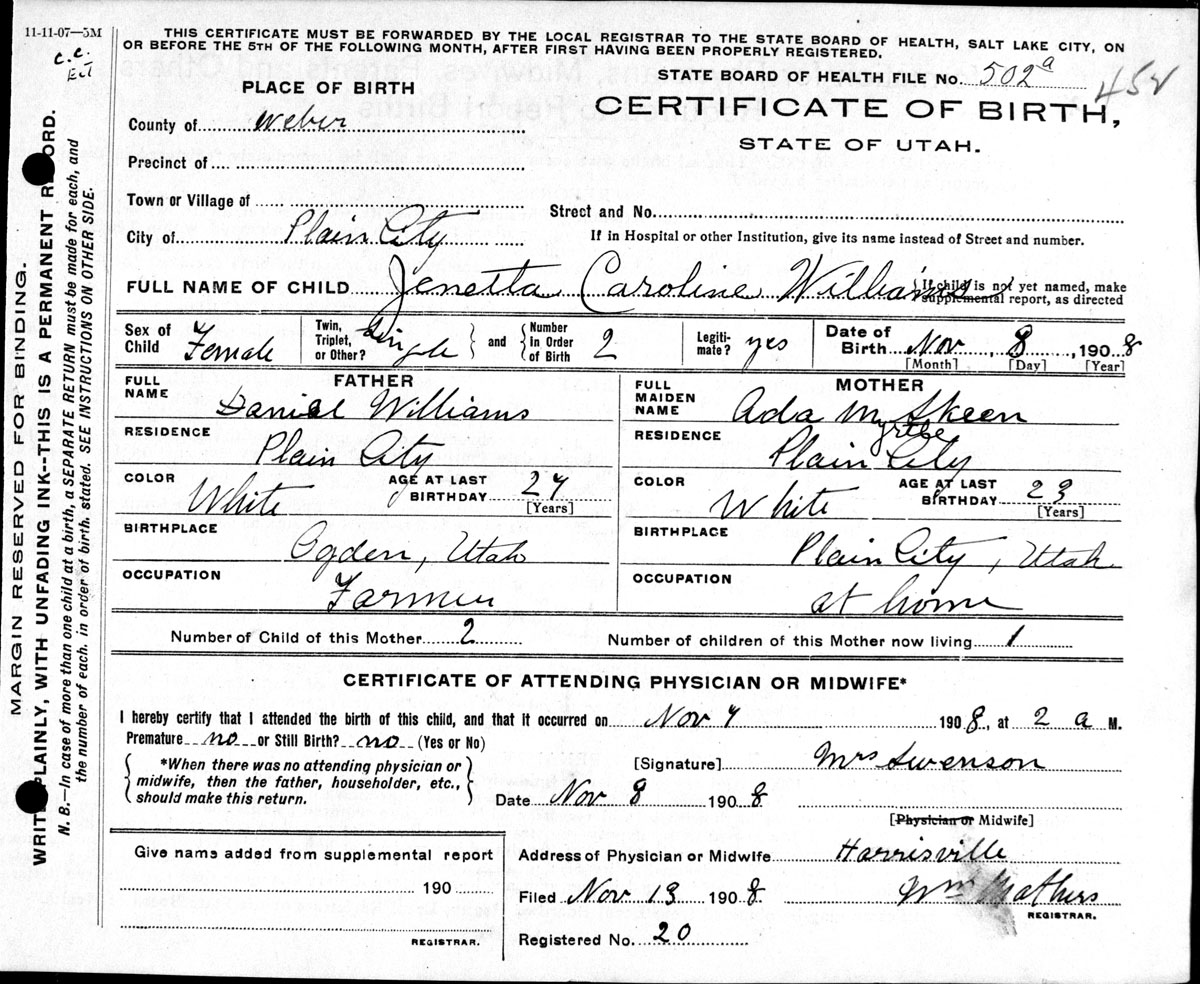 11-11-07—5M
THIS CERTIFICATE MUST BE FORWARDED BY THE LOCAL REGISTRAR TO THE STATE BOARD OF HEALTH, SALT LAKE CITY, ON
OR BEFORE THE 5TH OF THE FOLLOWING MONTH, AFTER FIRST HAVING BEEN PROPERLY REGISTERED.
c.c.
STATE BOARD OF HEALTH FILE No. 502a
452
PLACE OF BIRTH
CERTIFICATE OF BIRTH,
STATE OF UTAH.
County of Weber
Precinct of
Town or Village of
Street and No.
City of Plain City
If in Hospital or other Institution, give its name instead of Street and number.
FULL NAME OF CHILD Jenetta Caroline Williams
{If child is not yet named, make
supplemental report, as directed
Sex of Child Female
Twin, Triplet, or Other? Single
and Number in Order of Birth 2
Legitimate? yes
Date of Birth Nov, 8, 1908
[Month] [Day] [Year]
FATHER
FULL NAME Daniel Williams
RESIDENCE Plain City
COLOR White
AGE AT LAST BIRTHDAY 27
[Years]
BIRTHPLACE Ogden, Utah
OCCUPATION Farmer
MOTHER
FULL MAIDEN NAME Ada Myrtle Skeen
RESIDENCE Plain City
COLOR White
AGE AT LAST BIRTHDAY 23
[Years]
BIRTHPLACE Plain City, Utah
OCCUPATION at home
Number of Child of this Mother 2
Number of children of this Mother now living 1
CERTIFICATE OF ATTENDING PHYSICIAN OR MIDWIFE*
I hereby certify that I attended the birth of this child, and that it occurred on Nov 7 1908, at 2 a M.
Premature no or Still Birth? no (Yes or No)
{*When there was no attending physician or
midwife, then the father, householder, etc.,
should make this return.}
[Signature] Mrs Swenson
Date Nov 8 1908
[Physician or Midwife]
Give name added from supplemental report
190
REGISTRAR.
Address of Physician or Midwife Harrisville
Filed Nov 13 1908. Wm Mathers
REGISTRAR.
Registered No. 20
MARGIN RESERVED FOR BINDING.
WRITE PLAINLY, WITH UNFADING INK--THIS IS A PERMANENT RECORD.
N. B.—In case of more than one child at a birth, a SEPARATE RETURN must be made for each, and
the number of each, in order of birth, stated. SEE INSTRUCTIONS ON OTHER SIDE.